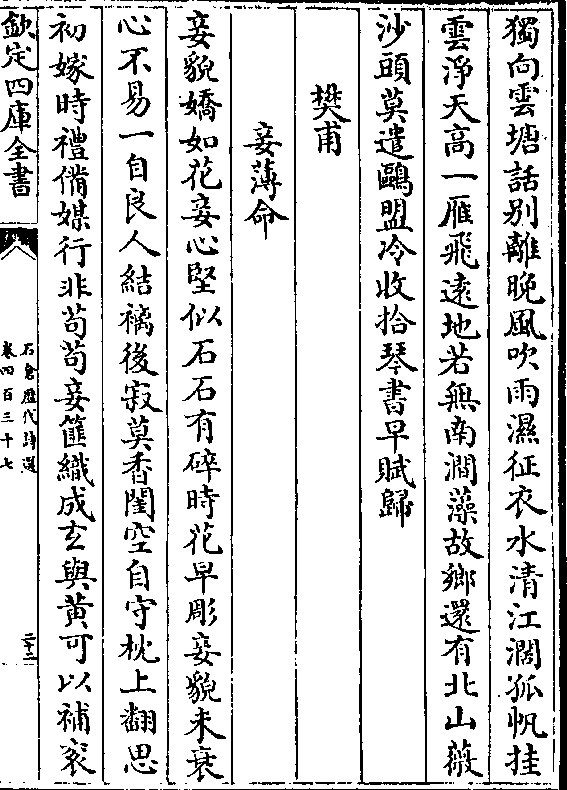 獨向雲塘話别離晚風吹雨濕征衣水清江濶孤帆挂
雲淨天高一雁飛遠地若無南澗藻故鄉還有北山薇
沙頭莫遣鷗盟冷收拾琴書早賦歸
樊甫
妾薄命
妾貌嬌如花妾心堅似石石有碎時花早彫妾貌未衰
心不易一自良人結褵後寂莫香閨空自守枕上翻思
初嫁時禮備媒行非苟苟妾篚織成玄與黄可以補衮
欽定四庫全書
石倉歷代詩選
卷四百三十七
二十二